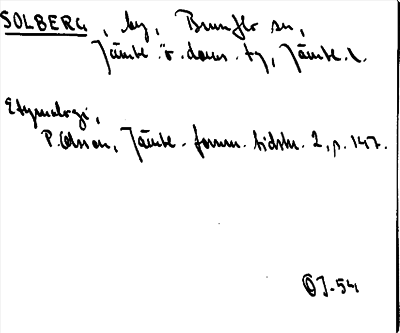 SOLBERG, by, Brunflo sn,
Jämtl. ö. doms. tg, Jämtl. l.
Etymologi,
P. Olsson, Jämtl. fornm. tidskr. 2, p. 147.
ÖJ-54